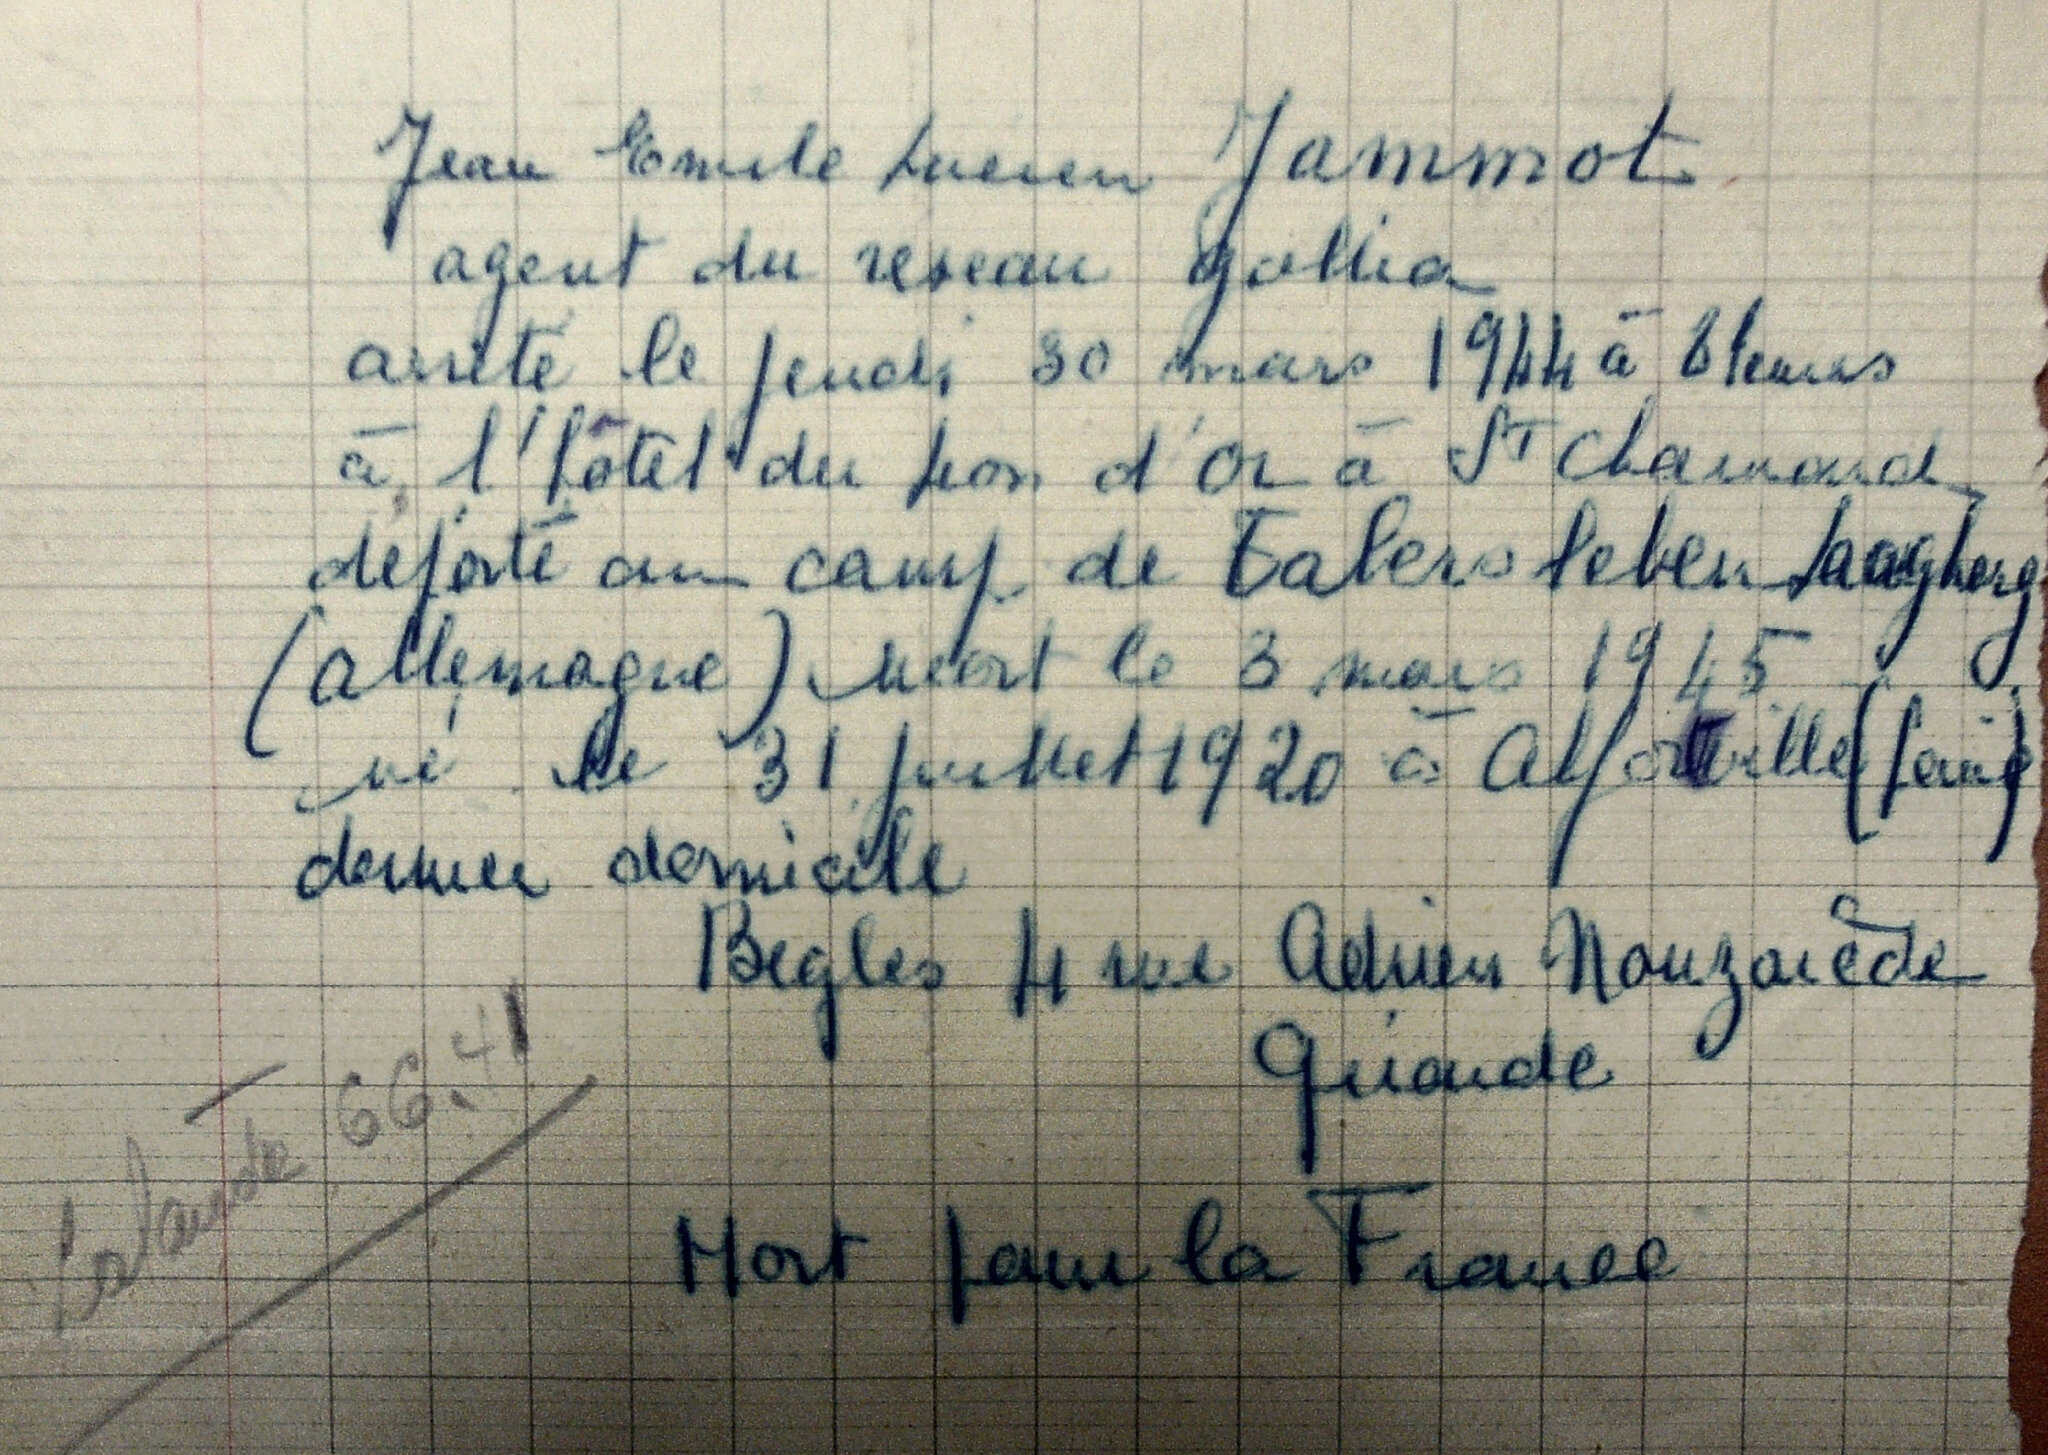 Jean Emile Lucien Jammot
agent du réseau Gallia
arrêté le jeudi 30 mars 1944 à 8 heures
à l'hôtel du Lion d'Or à St Chamond
déporté au camp de Falersleben Laagberg
(Allemagne) Mort le 3 mars 1945
né le 31 juillet 1920 à Alfortville (Seine)
dernier domicile
Begles 4 rue Adrien Nouzarède
Gironde
66.41
Mort pour la France